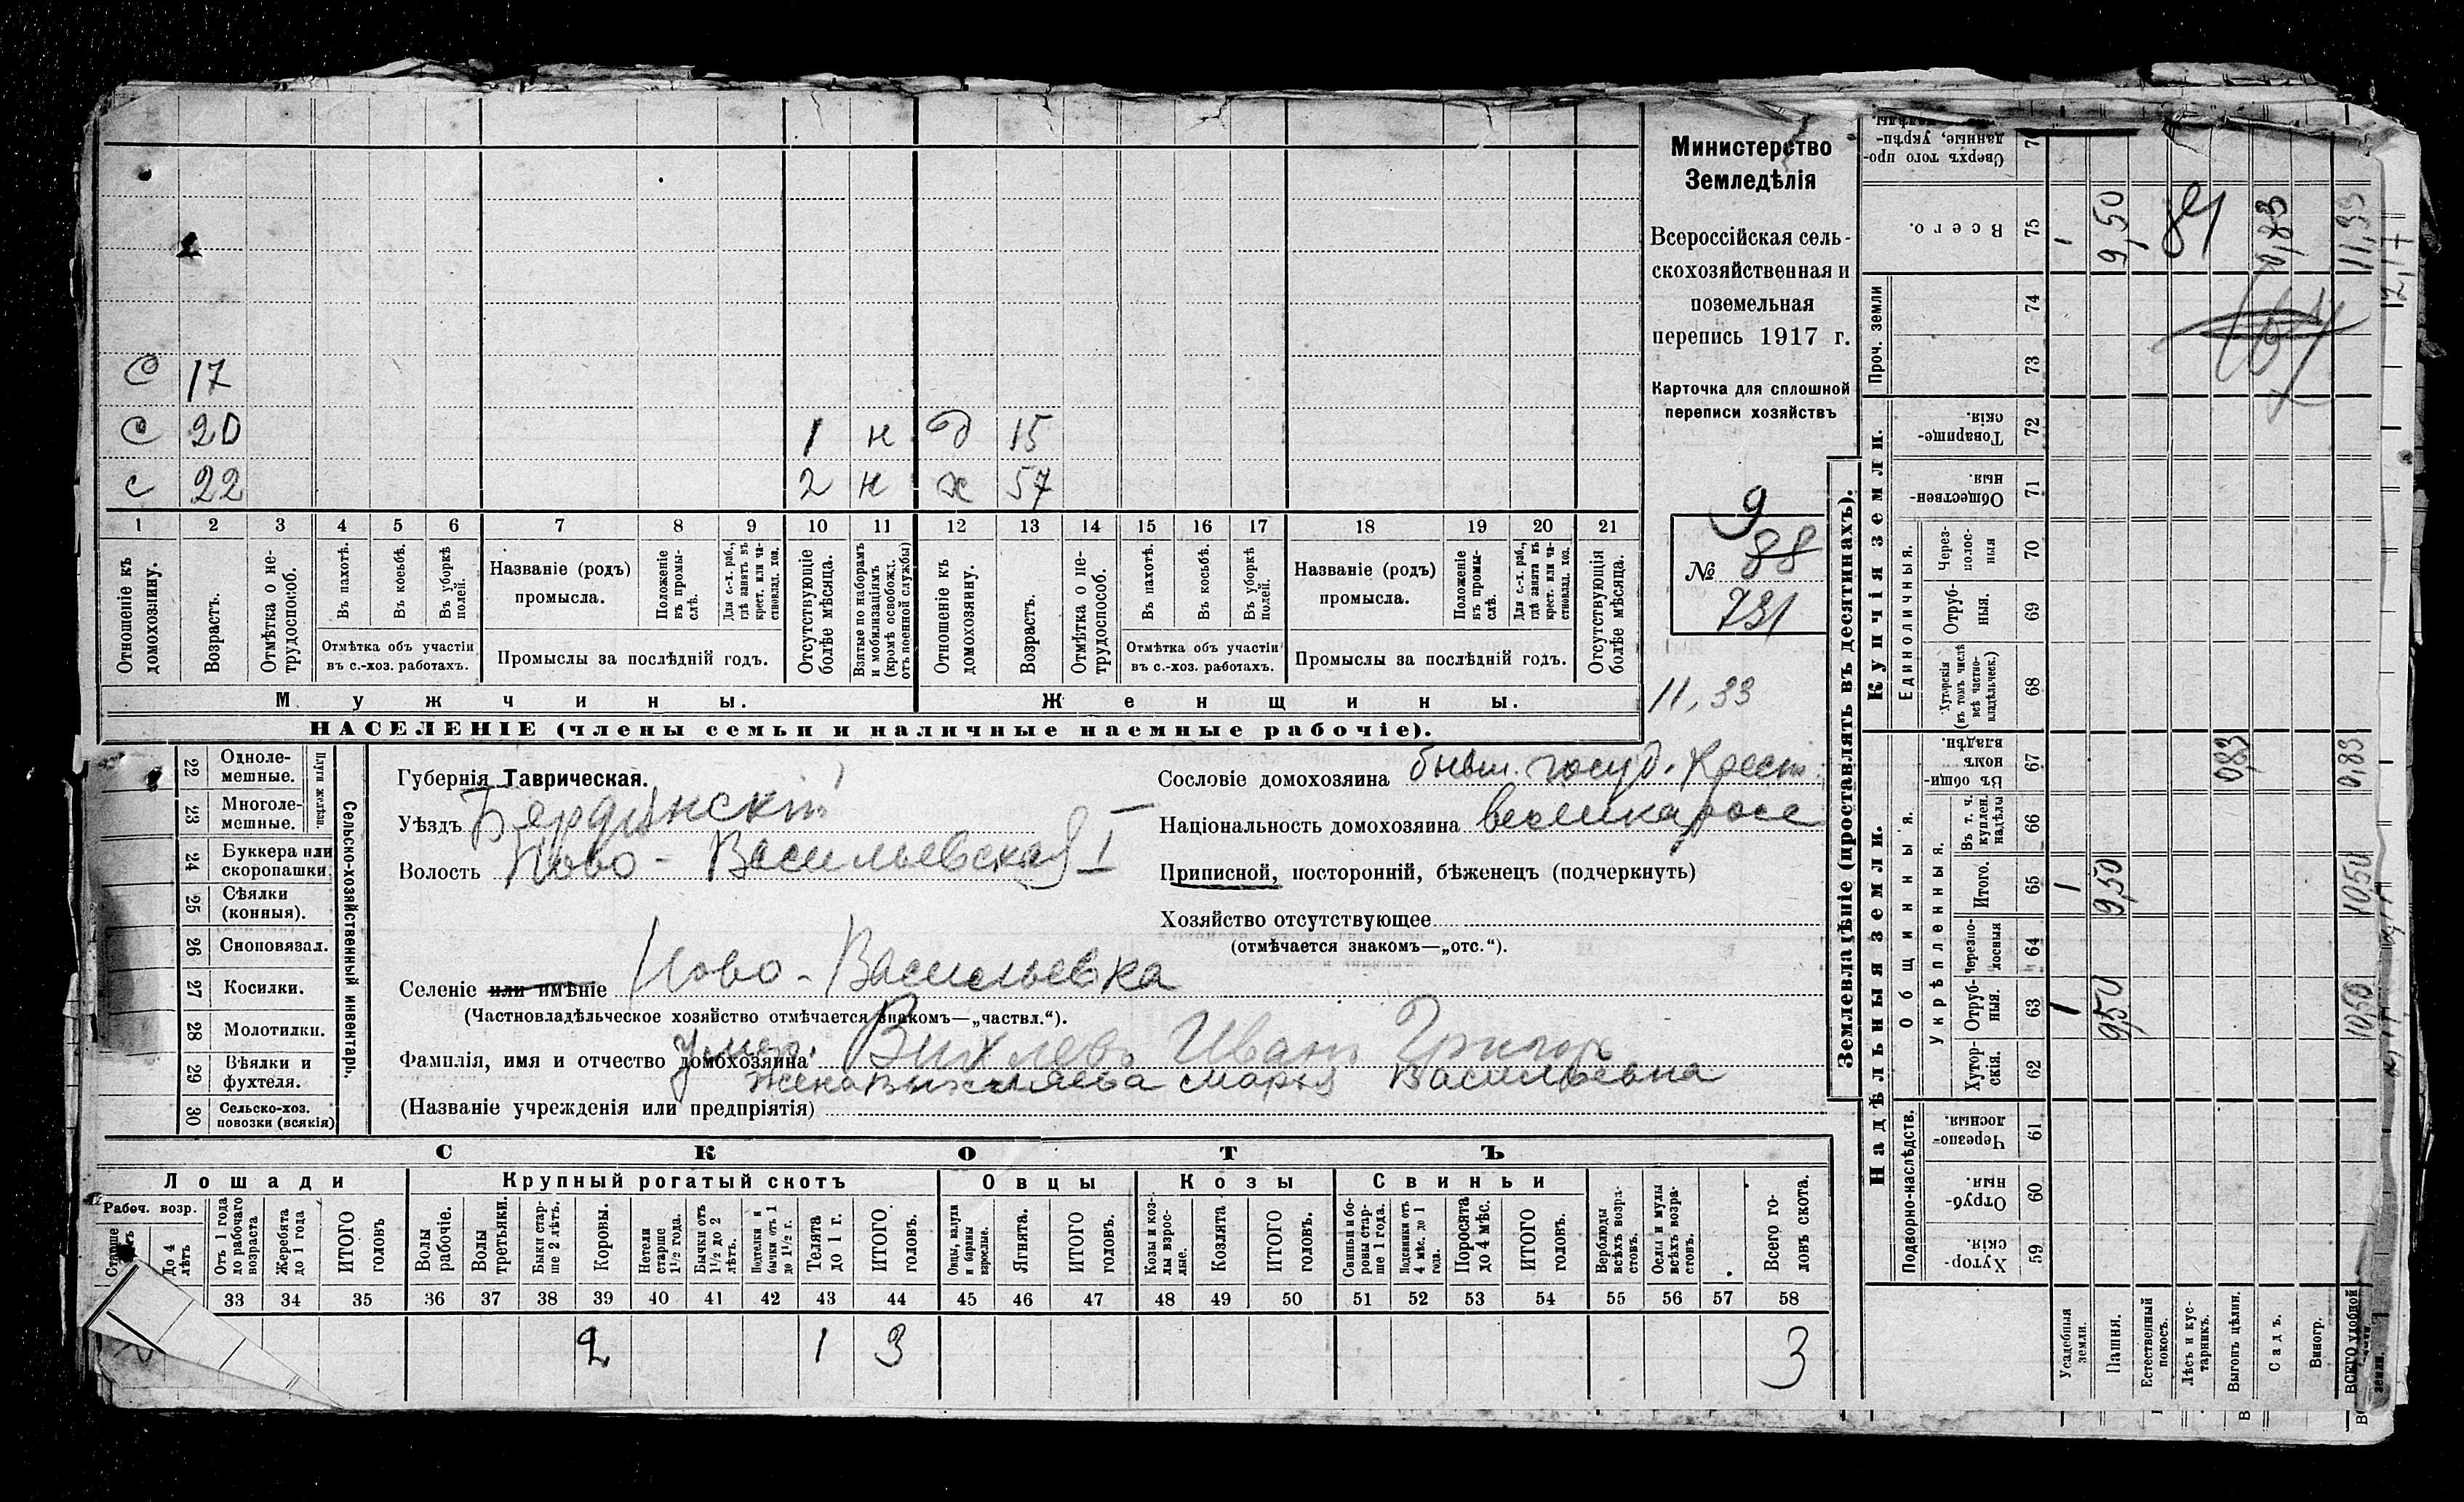 Министерство
Земледѣлія
Всероссійская сель-
скохозяйственная и
поземельная
перепись 1917 г.
Карточка для сплошной
переписи хозяйствъ
9
№ 88
731
11,33
С 17
С 20 1 н д 15
с 22 2 н ж 57
1 2 3 4 5 6 7 8 9 10 11 12 13 14 15 16 17 18 19 20 21
Отношеніе къ домохозяину.
Возрастъ.
Отмѣтка о не-трудоспособ.
Въ пахотѣ.
Въ косьбѣ.
Въ уборкѣ полей.
Отмѣтка объ участіи
въ с.-хоз. работахъ.
Названіе (родъ)
промысла.
Положеніе въ промы-слѣ.
Для с.-х. раб., гдѣ занятъ въ крест. или ча-стновлад. хоз.
Промыслы за послѣдній годъ.
Отсутствующіе болѣе мѣсяца.
Взятые по наборамъ и мобилизаціямъ (кромѣ освобожд. отъ военной службы)
Отношеніе къ домохозяину.
Возрастъ.
Отмѣтка о не-трудоспособ.
Въ пахотѣ.
Въ косьбѣ.
Въ уборкѣ полей.
Отмѣтка объ участіи
въ с.-хоз. работахъ.
Названіе (родъ)
промысла.
Положеніе въ промы-слѣ.
Для с.-х. раб., гдѣ занята въ крест. или ча-стновлад. хоз.
Промыслы за послѣдній годъ.
Отсутствующія болѣе мѣсяца.
Мужчины. Женщины.
НАСЕЛЕНІЕ (члены семьи и наличные наемные рабочіе).
22 Одноле-мешные.
23 Многоле-мешные.
Плуги желѣзн.
24 Буккера или скоропашки
25 Сѣялки (конныя).
26 Сноповязал.
27 Косилки.
28 Молотилки.
29 Вѣялки и фухтеля.
30 Сельско-хоз. повозки (всякія)
Сельско-хозяйственный инвентарь.
Губернія Таврическая.
Уѣздъ Бердянскій
Волость Ново-Васильевская I
Сословіе домохозяина бывш. госуд. Крест.
Національность домохозяина великоросс
Приписной, посторонній, бѣженецъ (подчеркнуть)
Хозяйство отсутствующее
(отмѣчается знакомъ—„отс.“).
Селеніе или имѣніе Ново-Васильевка
(Частновладѣльческое хозяйство отмѣчается знакомъ—„частвл.“).
Фамилія, имя и отчество домохозяина Умер. Вихлевъ Иванъ Григор
жена Вихляева Марья Васильевна
(Названіе учрежденія или предпріятія)
СКОТЪ
Лошади Крупный рогатый скотъ Овцы Козы Свиньи
Рабоч. возр.
Старше
До 4 лѣтъ
Отъ 1 года до рабочаго возраста
Жеребята до 1 года
ИТОГО головъ
Волы рабочіе.
Волы третьяки.
Быки стар-ше 2 лѣтъ.
Коровы.
Нетели старше 1½ года.
Бычки отъ 1½ до 2 лѣтъ.
Подтелки и бычки отъ 1 до 1½ г.
Телята до 1 г.
ИТОГО головъ.
Овцы, валухи и бараны взрослые.
Ягнята.
ИТОГО головъ.
Козы и коз-лы взрос-лые.
Козлята
ИТОГО головъ.
Свиньи и бо-ровы стар-ше 1 года.
Подсвинки отъ 4 мѣс. до 1 года.
Поросята до 4 мѣс.
ИТОГО головъ.
Верблюды всѣхъ возра-стовъ.
Ослы и мулы всѣхъ возра-стовъ.
Всего го-ловъ скота.
33 34 35 36 37 38 39 40 41 42 43 44 45 46 47 48 49 50 51 52 53 54 55 56 57 58
2 1 3 3
Землевладѣніе (проставлять въ десятинахъ).
Надѣльныя земли.
Подворно-наслѣдств.
Хутор-скія. 59
Отруб-ныя. 60
Черезпо-лосныя. 61
Общинныя.
Укрѣпленныя.
Хутор-скія. 62
Отруб-ныя. 63 1 9,50 10,50
Черезпо-лосныя 64
Итого. 65 1 9,50 10,50
Въ т. ч. куплен. надѣлы 66
Въ общин-номъ владѣн. 67 0,83 0,83
Купчія земли.
Единоличныя.
Хуторскія (въ томъ числѣ всѣ частно-владѣльческ.) 68
Отруб-ныя. 69
Через-полос-ныя 70
Обществен-ныя 71
Товарище-скія. 72
Проч. земли
73
74
Всего. 75 1 9,50 84 0,83 11,33
12,17
Сверхъ того про-данные, укрѣп-
Усадебныя земли.
Пашня.
Естественный покосъ.
Лѣсъ и кус-тарникъ.
Выгонъ цѣлин.
Садъ.
Виногр.
ВСЕГО удобной земли.